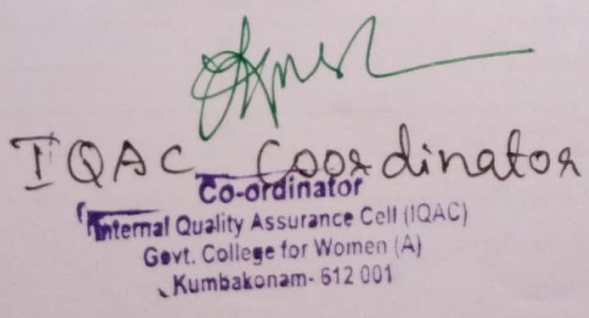 IQAC Coordinator
Co-ordinator
Internal Quality Assurance Cell (IQAC)
Govt. College for Women (A)
Kumbakonam- 612 001